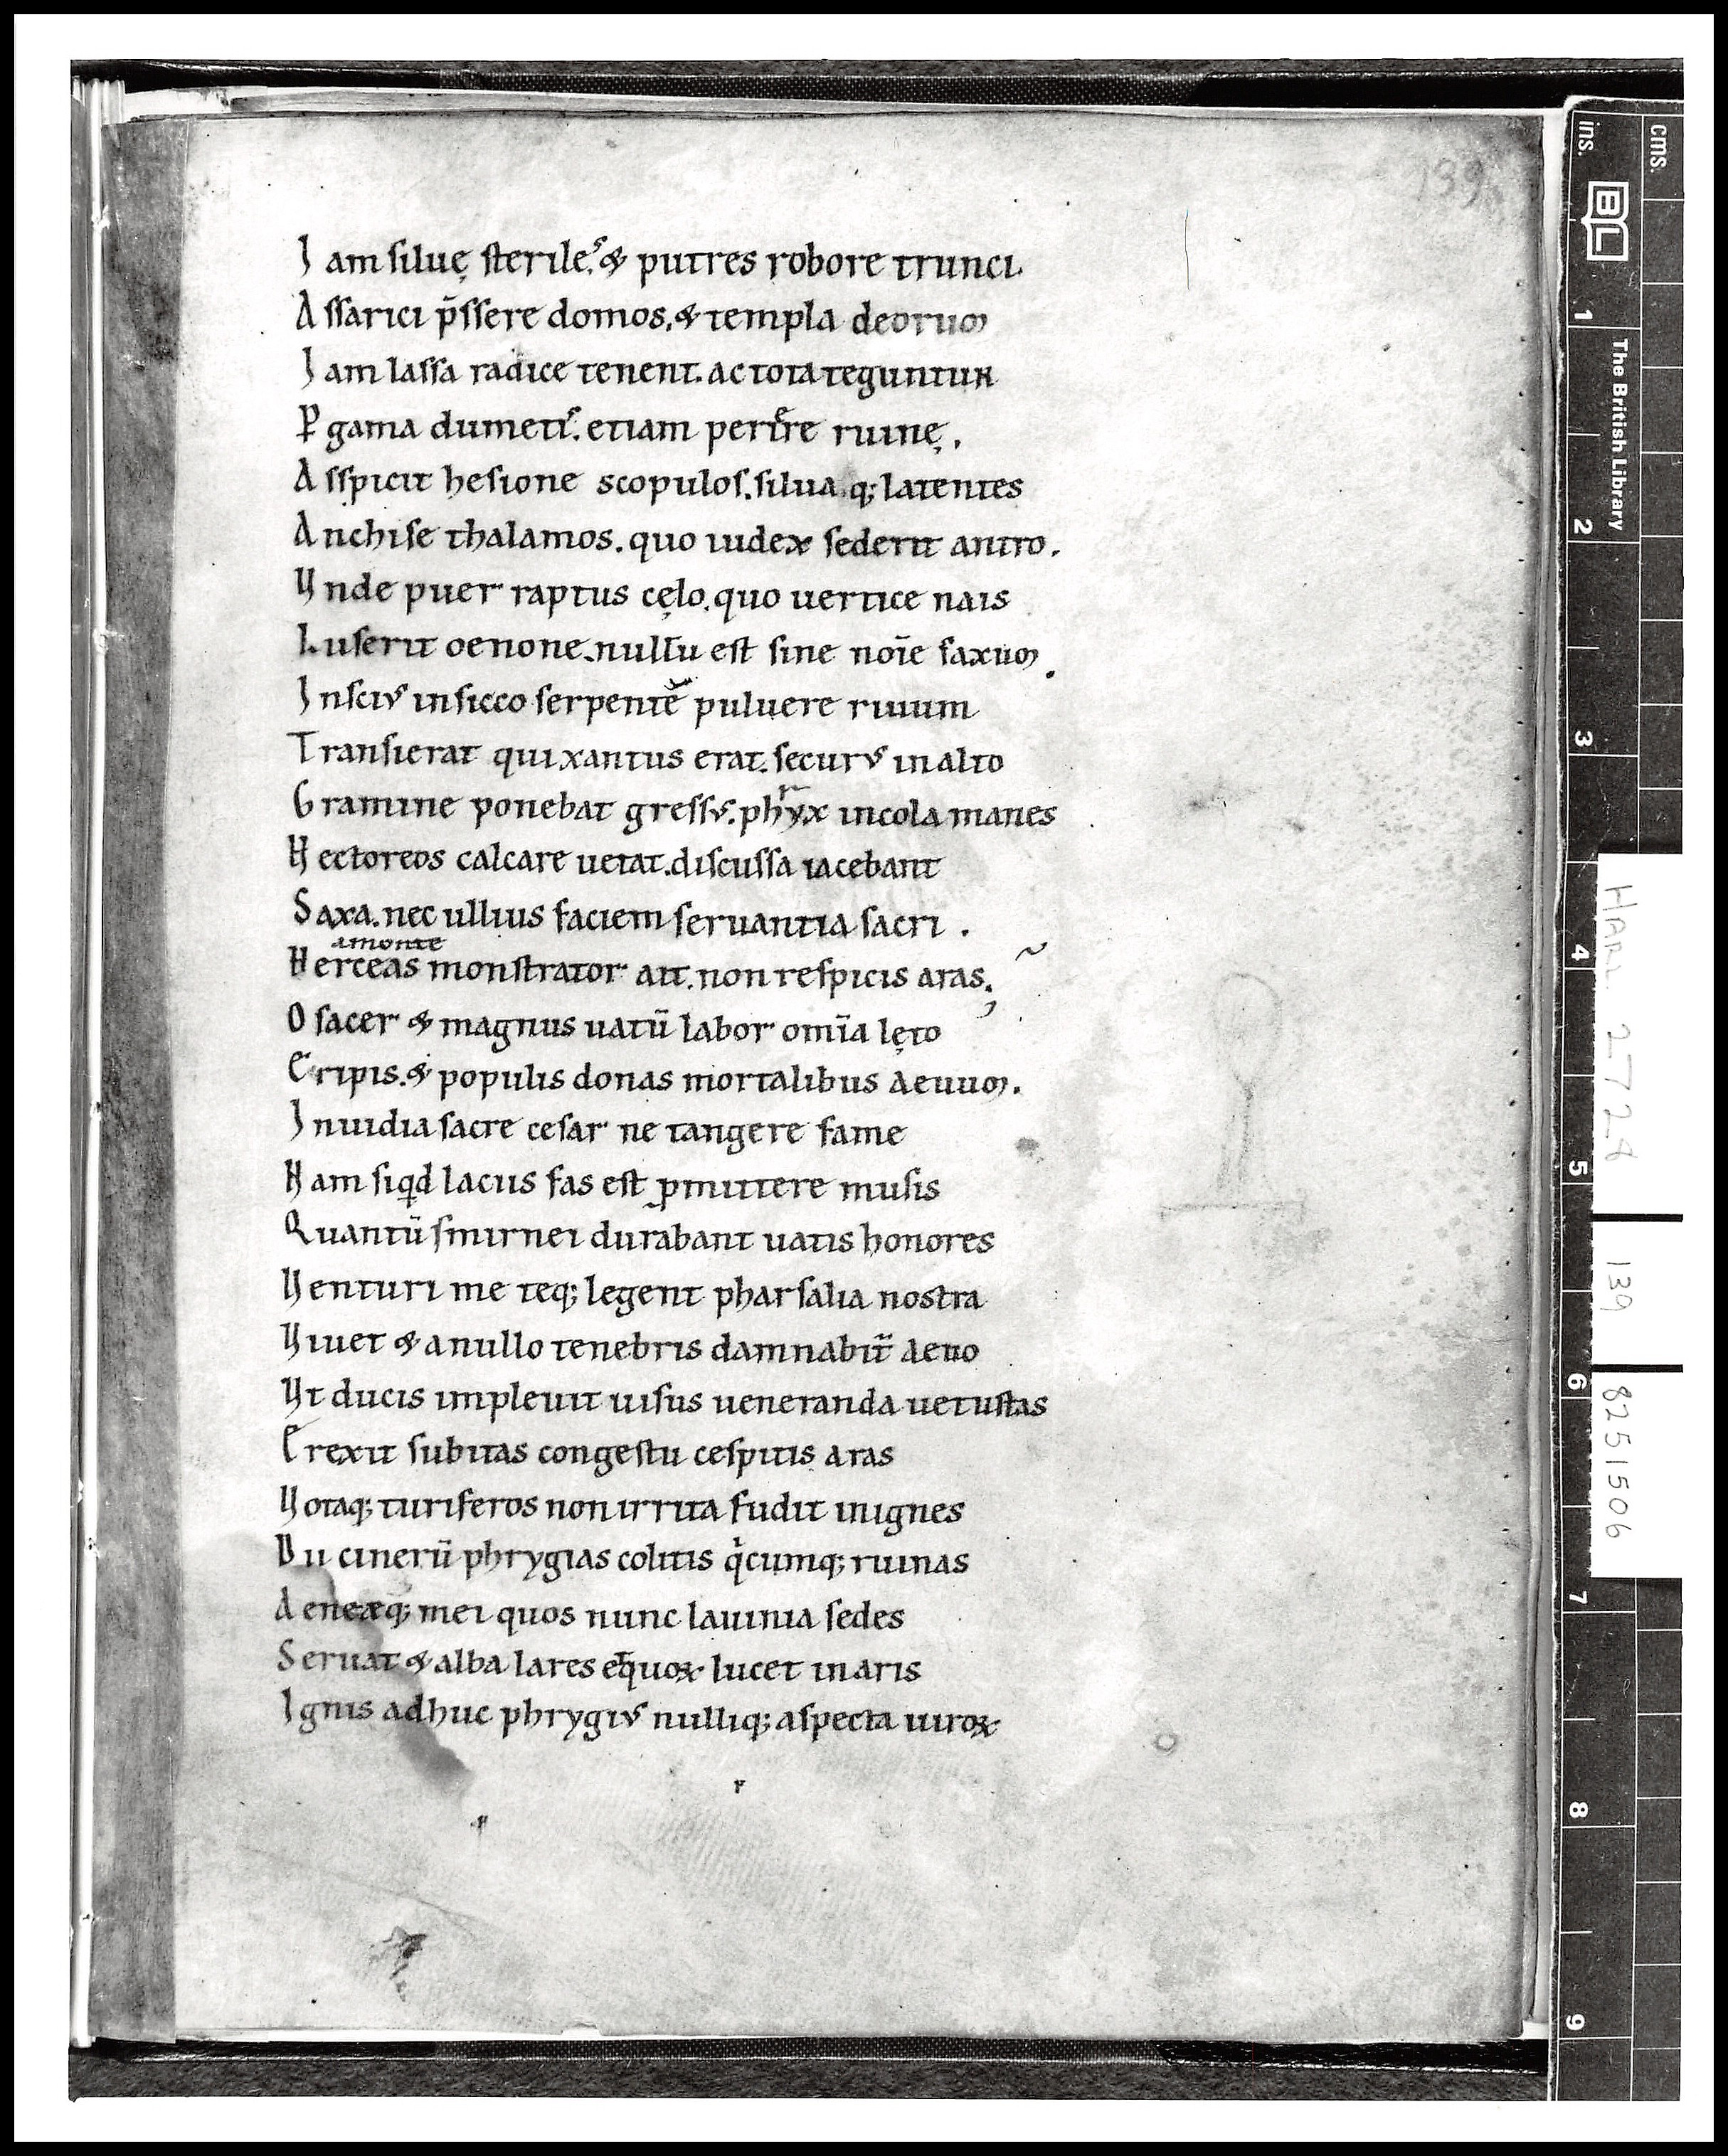 139
I am siluę sterile.s & putres robore trunci.
A ssarici p̄ssere domos, & templa deorum
I am lassa radice tenent. ac tota teguntur
P̱ gama dumetis. etiam perire ruinę.
A sspicit hesione scopulos. silua q; latentes
A nchise thalamos. quo iudex sederit antro.
V nde puer raptus cęlo. quo uertice nais
L userit oenone. nullū est sine noīe saxum.
I nscius in sicco serpentē puluere riuum
T ransierat qui xantus erat. securus in alto
G ramine ponebat gressus. phryx incola manes
H ectoreos calcare uetat. discussa iacebant
S axa. nec ullius faciem seruantia sacri.
amonte
H erceas monstrator ait. non respicis aras.
O sacer & magnus uatū labor omīa lęto
E ripis. & populis donas mortalibus aeuum.
I nuidia sacre cesar ne tangere fame
N am siqd lacus fas est ꝓmittere musis
Q uantū smirnei durabant uatis honores
V enturi me teq; legent pharsalia nostra
V iuet & anullo tenebris damnabit̄ aeuo
V t ducis impleuit uisus ueneranda uetustas
E rexit subitas congestu cespitis aras
V otaq; turiferos non irrita fudit inignes
D ii cinerū phrygias colitis qicumq; ruinas
A eneæq; mei quos nunc lauinia sedes
S eruat & alba lares eꝗuoꝝ lucet inaris
I gnis adhuc phrygius nulliq; aspecta uiroꝝ
cms.
ins.
BL
The British Library
1
2
3
4
5
6
7
8
9
HARL 2728
139
8251506